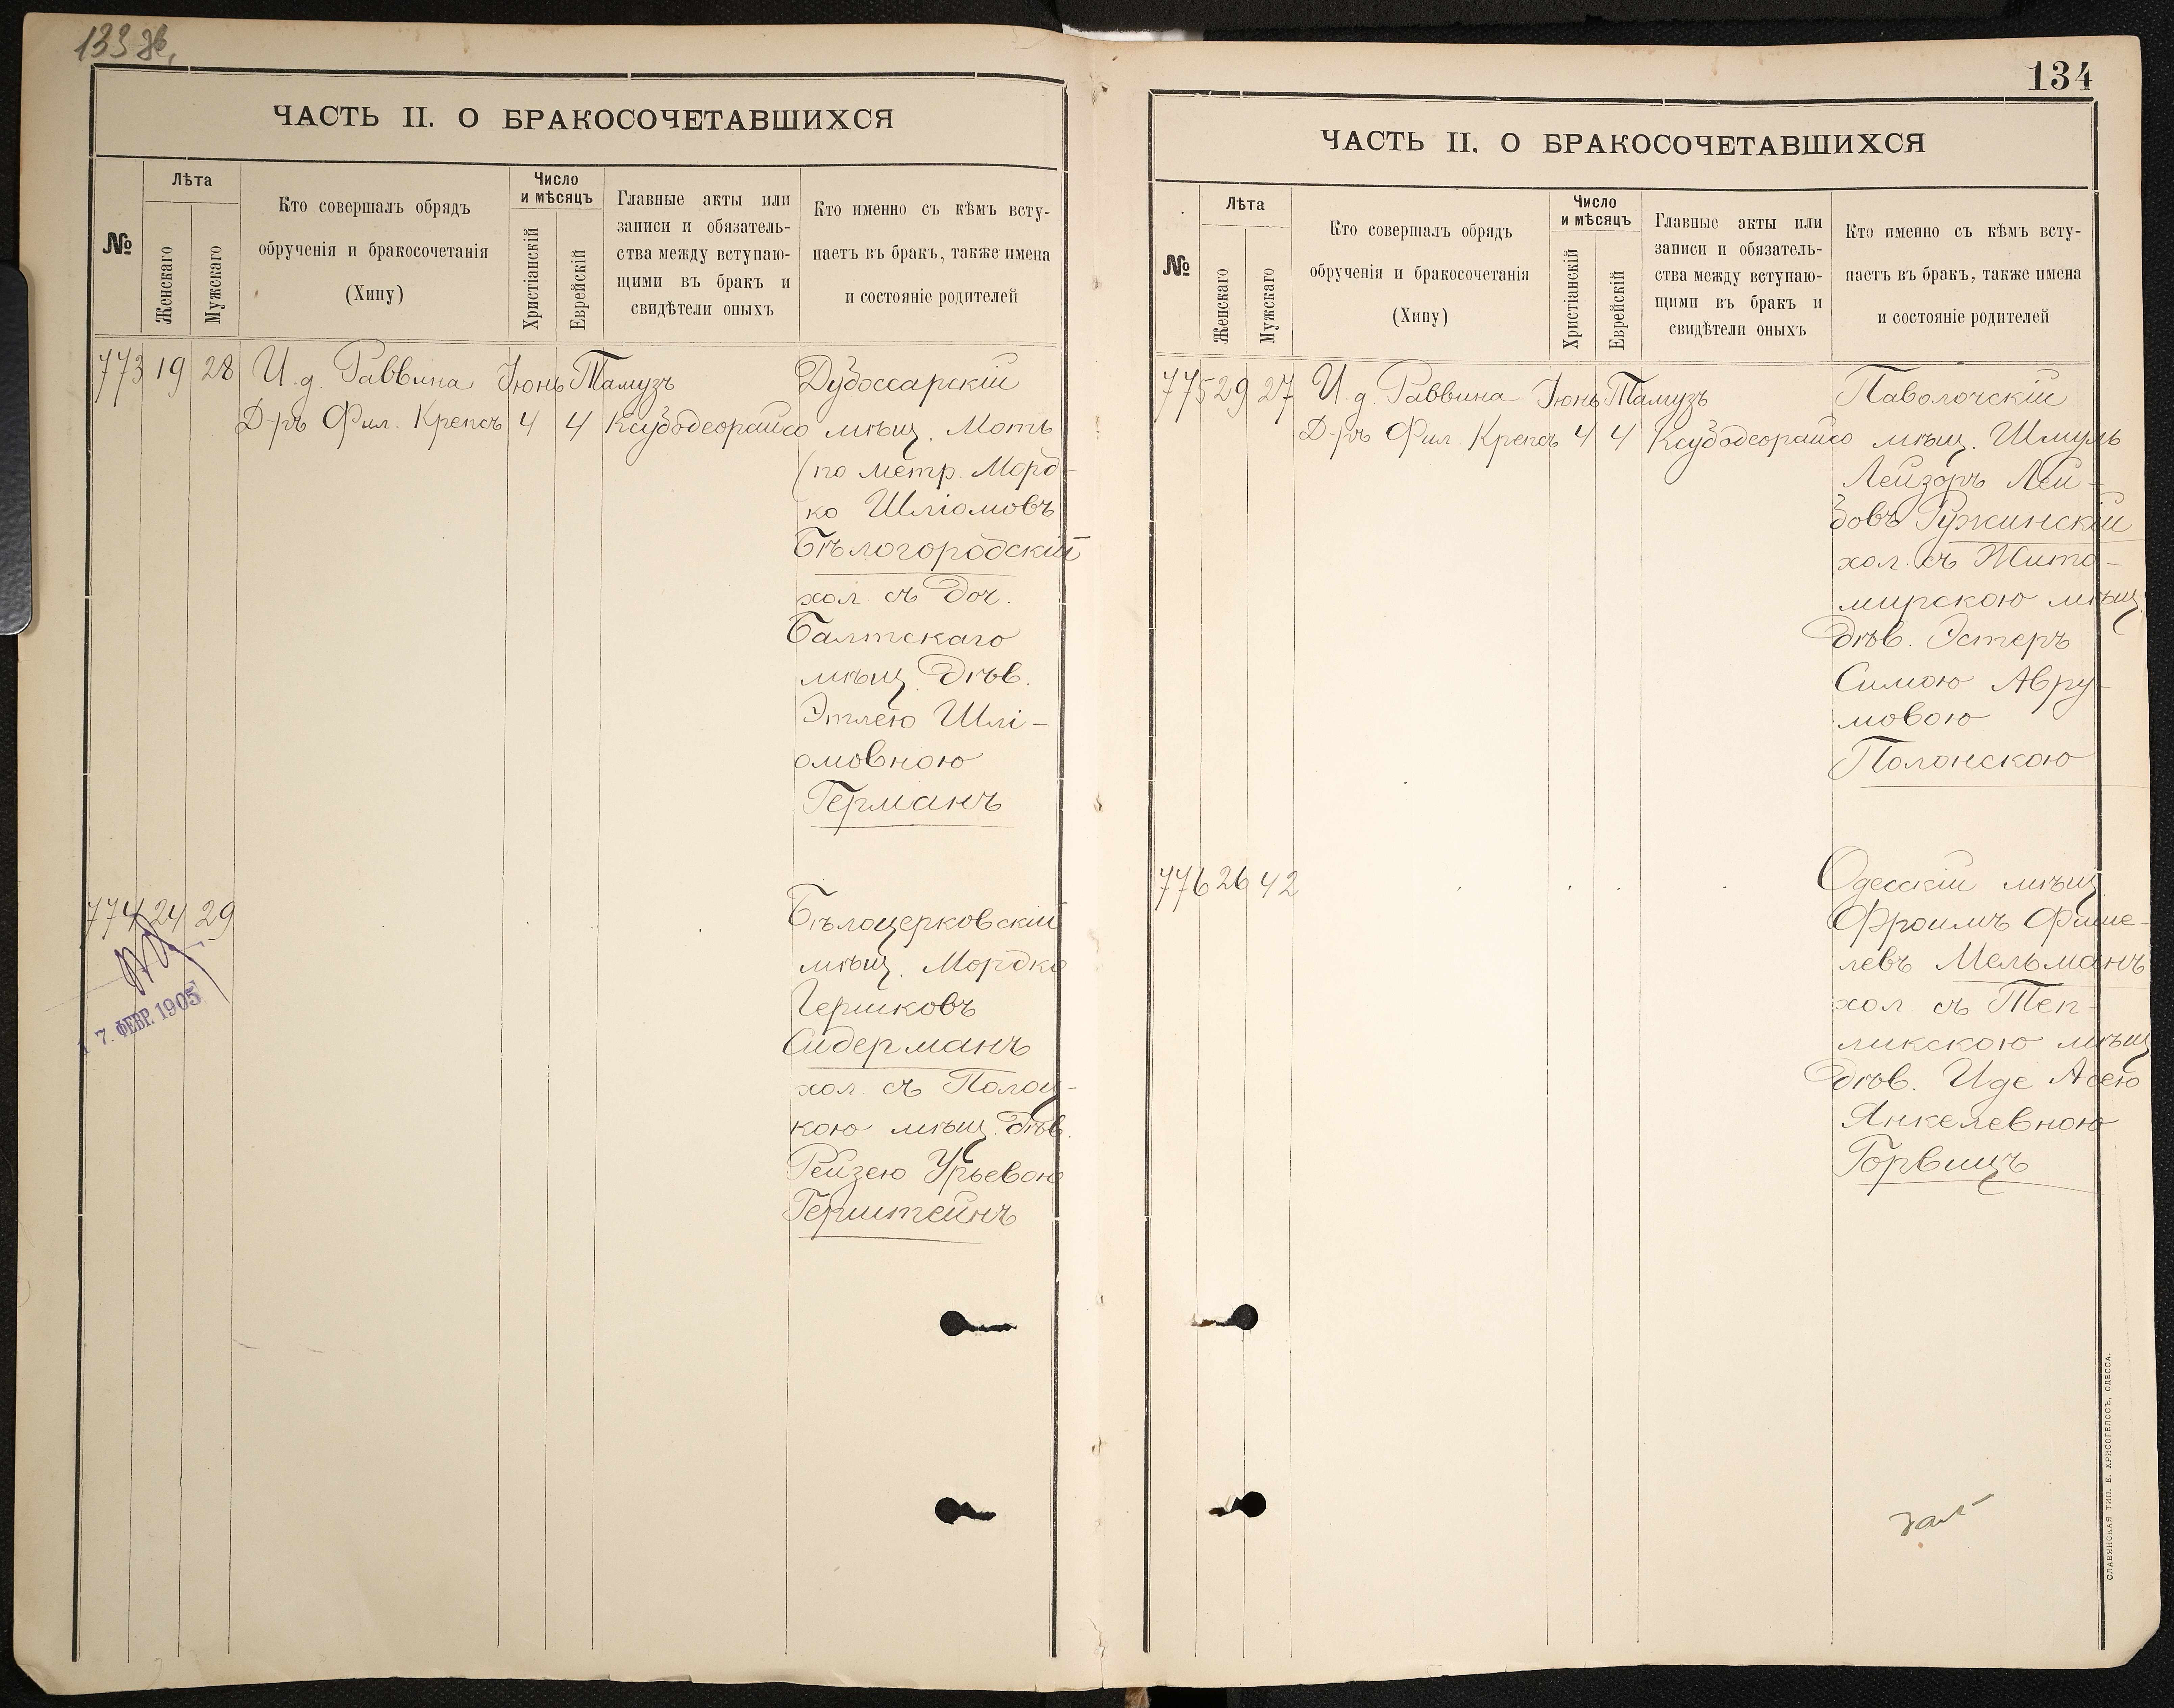 133 зв.
ЧАСТЬ II. О БРАКОСОЧЕТАВШИХСЯ
№
Лѣта
Женскаго
Мужскаго
Кто совершалъ обрядъ
обрученія и бракосочетанія
(Хипу)
Число
и мѣсяцъ
Христіанскій
Еврейскій
Главные акты или
записи и обязатель-
ства между вступаю-
щими въ бракъ и
свидѣтели оныхъ
Кто именно съ кѣмъ всту-
паетъ въ бракъ, также имена
и состояніе родителей
773 19 28 И. д. Раввина Іюнь Тамузъ Дубоссарскій
Д-ръ Фил. Крепсъ 4 4 Ксубодеорайсо мѣщ. Моть
(по метр. Морд-
ко Шліомовъ
Бѣлогородскій
хол. съ доч.
Балтскаго
мѣщ. дѣв.
Этлею Шлі-
омовною
Германъ
774 24 29 Бѣлоцерковскій
мѣщ. Мордко
Гершковъ
Сидерманъ
хол. съ Полоц-
кою мѣщ. дѣв.
Рейзею Урьевою
Герштейнъ
17. ФЕВР. 1905
134
ЧАСТЬ II. О БРАКОСОЧЕТАВШИХСЯ
№
Лѣта
Женскаго
Мужскаго
Кто совершалъ обрядъ
обрученія и бракосочетанія
(Хипу)
Число
и мѣсяцъ
Христіанскій
Еврейскій
Главные акты или
записи и обязатель-
ства между вступаю-
щими въ бракъ и
свидѣтели оныхъ
Кто именно съ кѣмъ всту-
паетъ въ бракъ, также имена
и состояніе родителей
775 29 27 И. д. Раввина Іюнь Тамузъ Паволочскій
Д-ръ Фил. Крепсъ 4 4 Ксубодеорайсо мѣщ. Шмуль
Лейзоръ Лей-
бовъ Ружинскій
хол. съ Жито-
мирскою мѣщ.
дѣв. Эстеръ
Симою Авру-
мовою
Полонскою
776 26 42 Одесскій мѣщ.
Фроимъ Фише-
левъ Мельманъ
хол. съ Теп-
ликскою мѣщ.
дѣв. Иде Асею
Янкелевною
Горвицъ
СЛАВЯНСКАЯ ТИП. Е. ХРИСОГЕЛОСЪ, ОДЕССА.